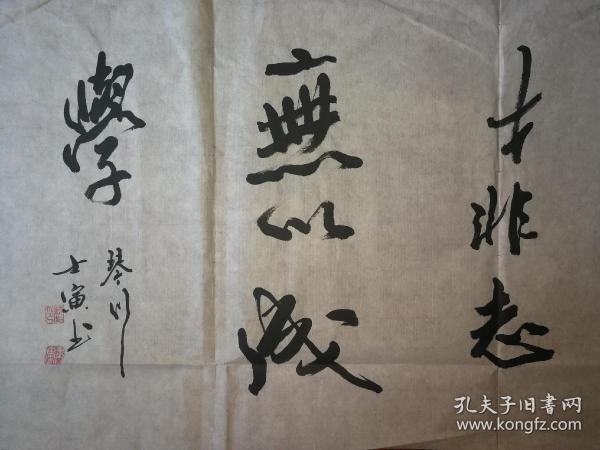 才非志
無以成
學
琴川
士寅书
孔夫子旧書网
www.kongfz.com